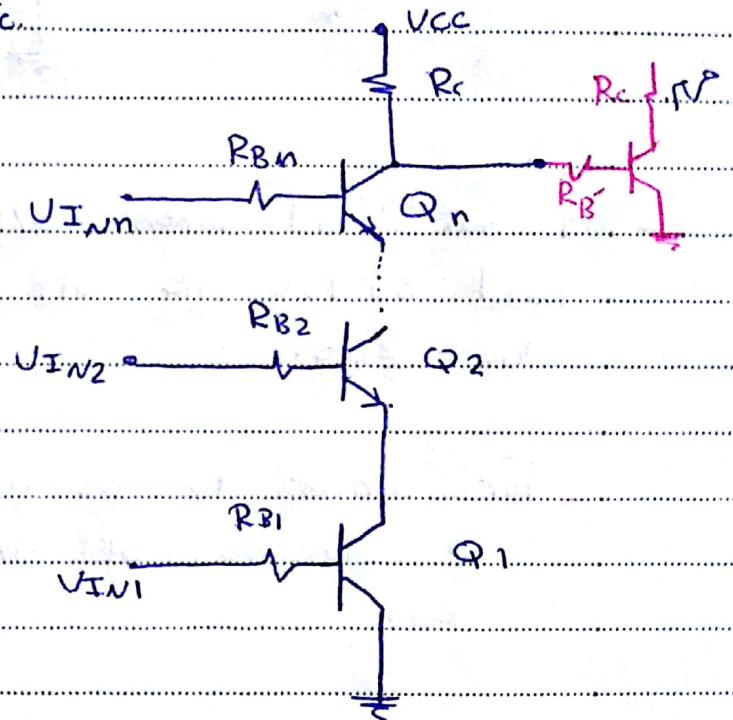 c.
VCC
Rc
Rc
RBn
VINn
Qn
RB'
RB2
VIN2
Q2
RB1
VIN1
Q1